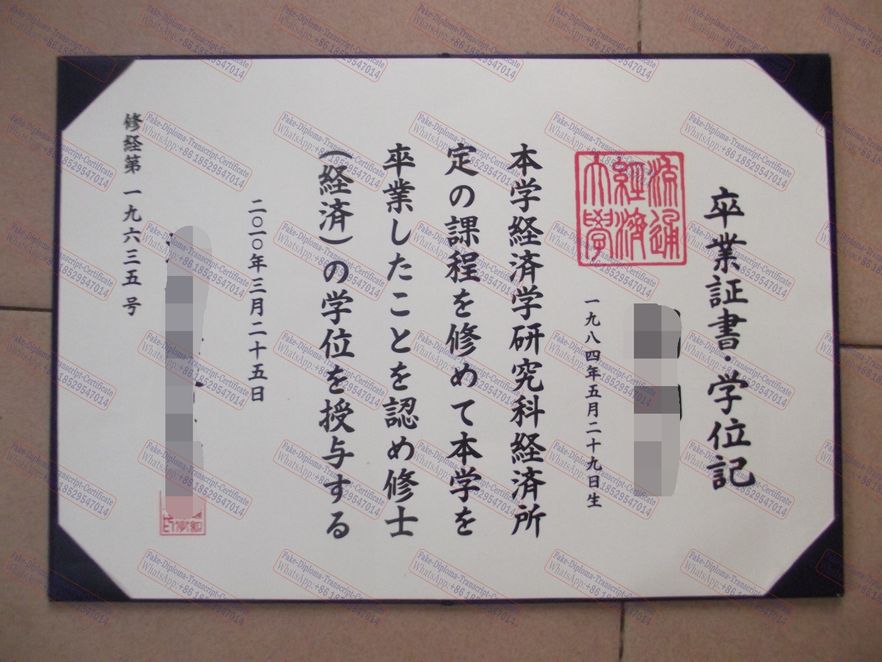 卒業証書・学位記
流通
經濟
大學
一九八四年五月二十九日生
本学経済学研究科経済所
定の課程を修めて本学を
卒業したことを認め修士
(経済)の学位を授与する
二〇一〇年三月二十五日
修経第一九六三五号
Fake-Diploma-Transcript-Certificate
WhatsApp:+86 18529547014